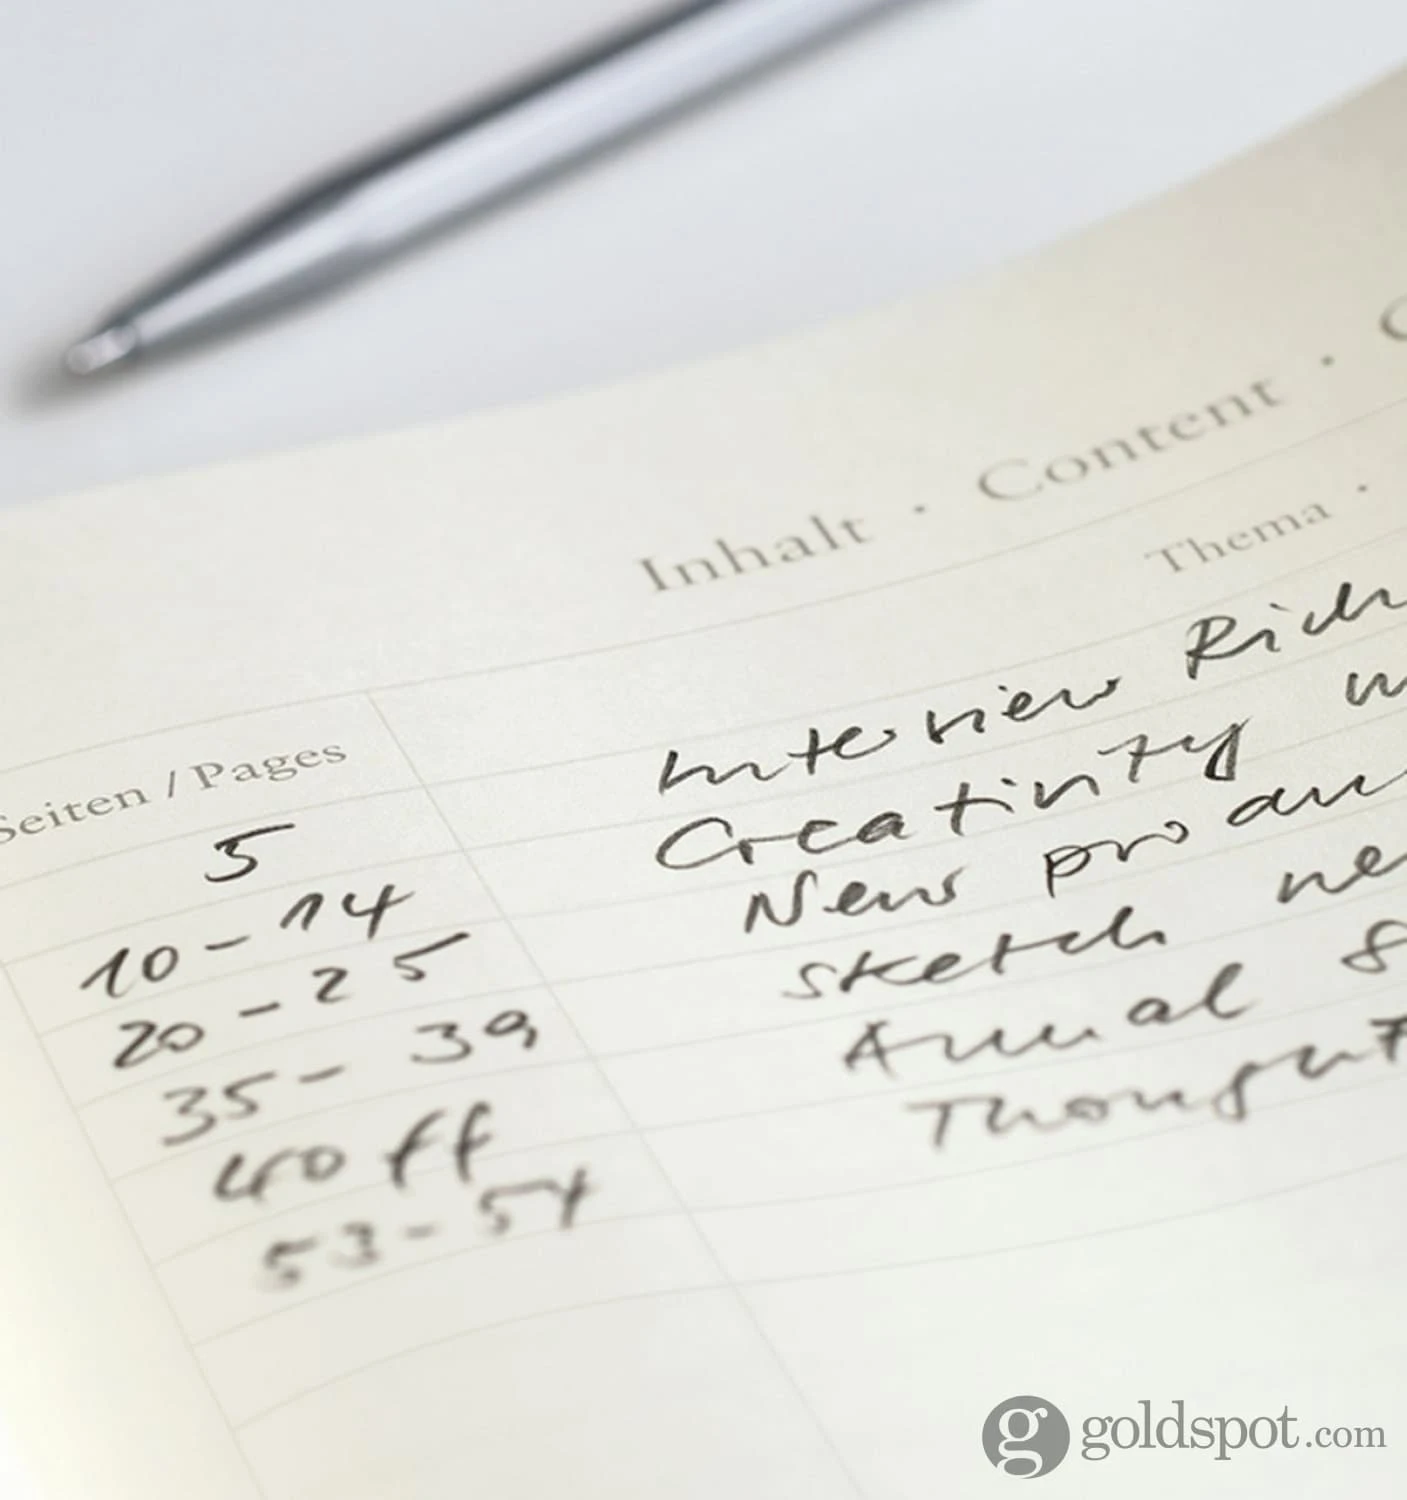 Inhalt · Content ·
Thema ·
Seiten / Pages
5 Interview Rich
10 - 14 Creativity
20 - 25 New pro
35 - 39 Sketch ne
40 ff Annual
53 - 54 Thought
goldspot.com